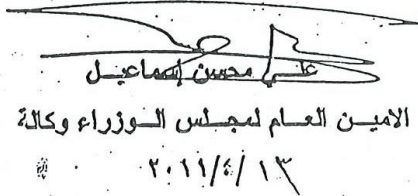 علي محسن إسماعيل
الامين العام لمجلس الوزراء وكالة
٢٠١١/٤/١٣